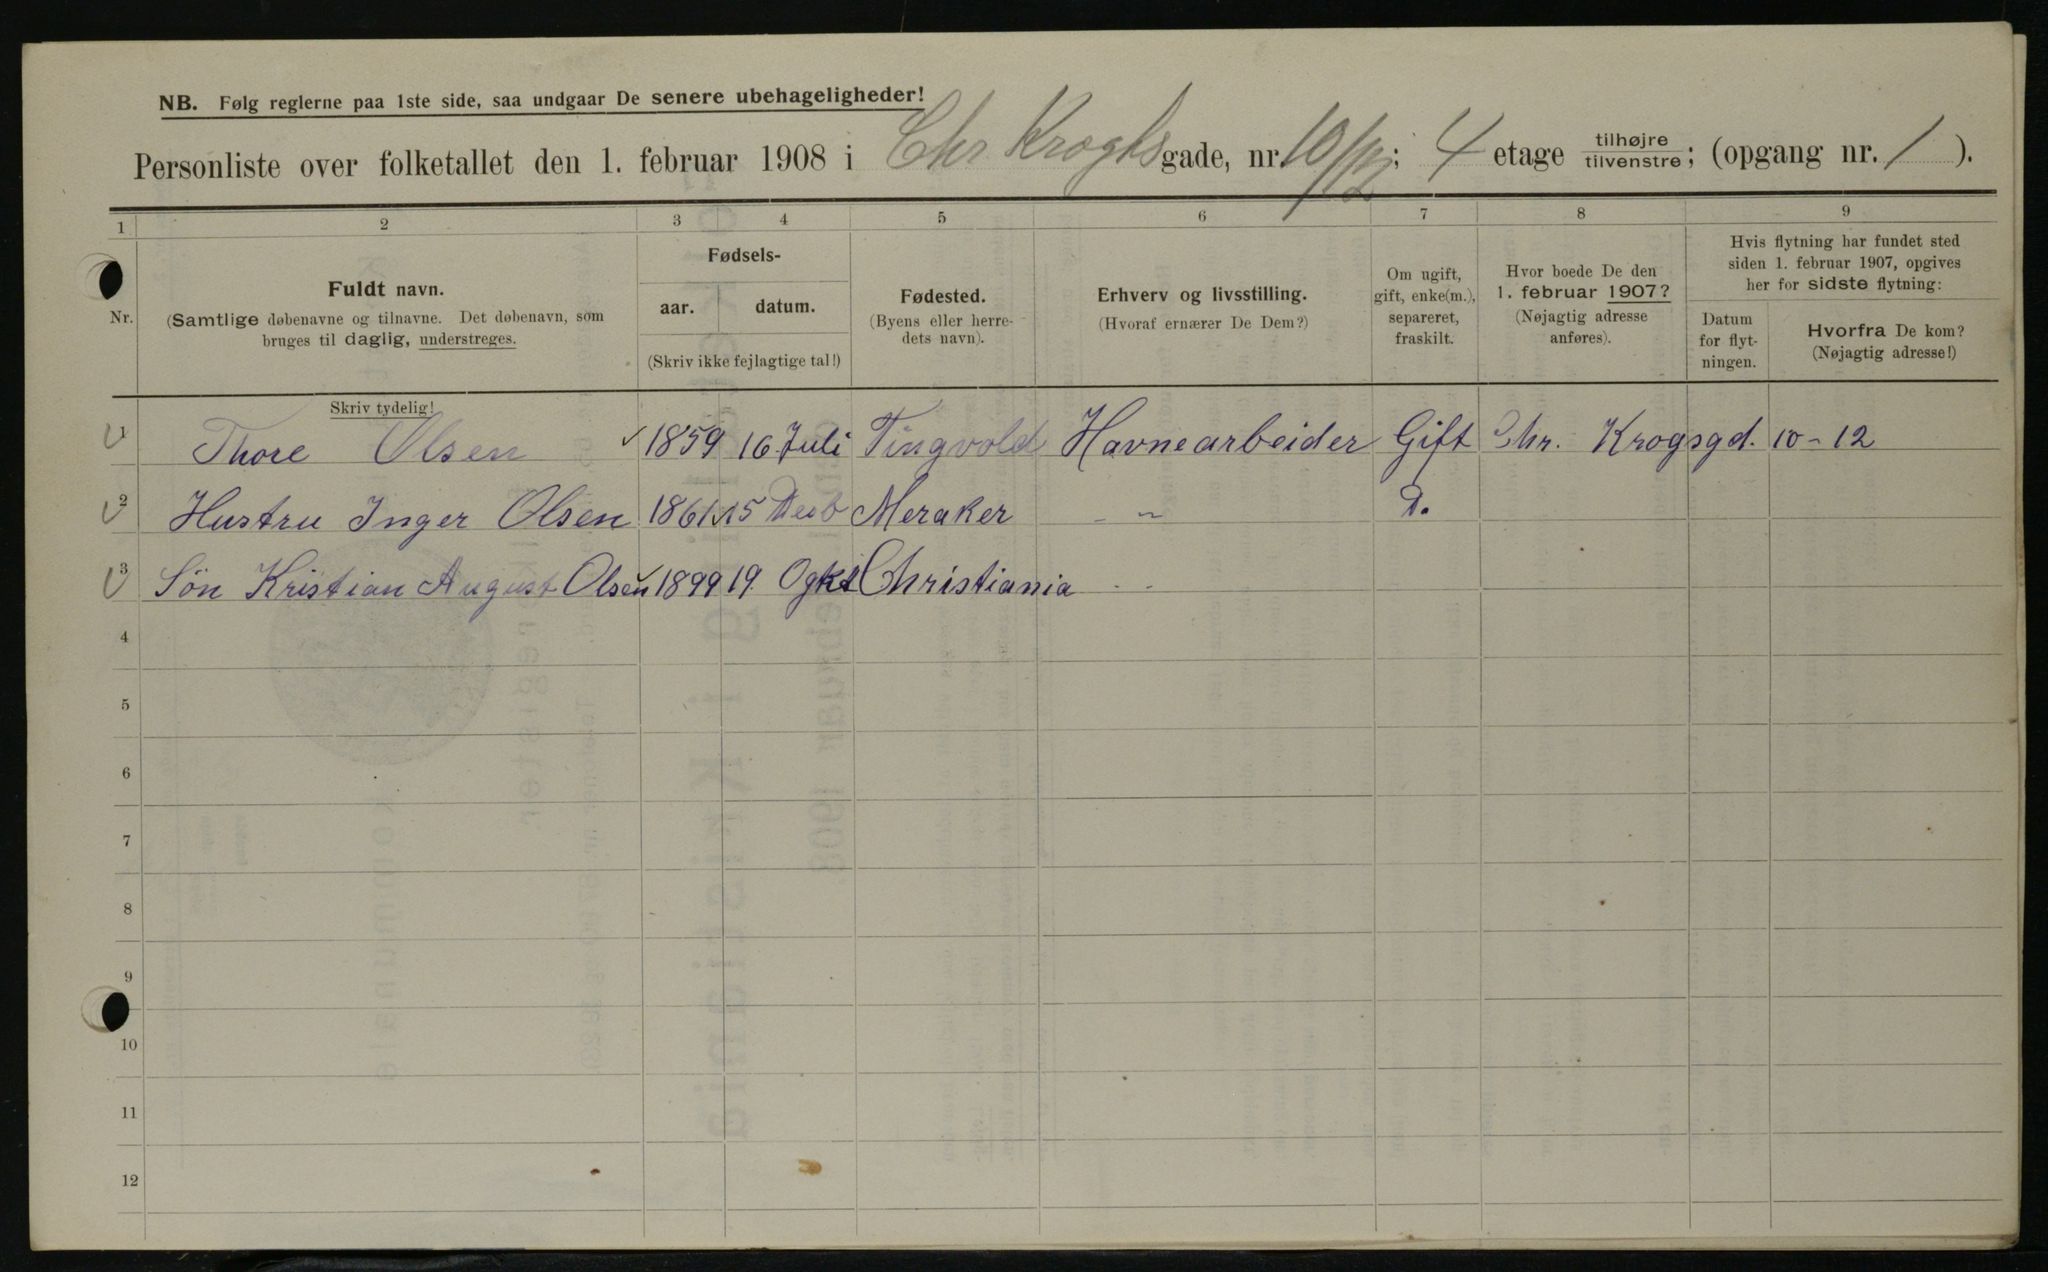 NB. Følg reglerne paa 1ste side, saa undgaar De senere ubehageligheder!
Personliste over folketallet den 1. februar 1908 i Chr Kroghs gade, nr. 10/12; 4 etage tilhøjre tilvenstre; (opgang nr. 1).
1 2 3 4 5 6 7 8 9
Nr.
Fuldt navn.
(Samtlige døbenavne og tilnavne. Det døbenavn, som
bruges til daglig, understreges.
Fødsels-
aar. datum.
(Skriv ikke fejlagtige tal!)
Fødested.
(Byens eller herre-
dets navn).
Erhverv og livsstilling.
(Hvoraf ernærer De Dem?)
Om ugift,
gift, enke(m.),
separeret,
fraskilt.
Hvor boede De den
1. februar 1907?
(Nøjagtig adresse
anføres).
Hvis flytning har fundet sted
siden 1. februar 1907, opgives
her for sidste flytning:
Datum
for flyt-
ningen.
Hvorfra De kom?
(Nøjagtig adresse!)
Skriv tydelig!
1 Thore Olsen 1859 16 Juli Tingvold Havnearbeider Gift Chr. Krogsgd. 10-12
2 Hustru Inger Olsen 1861 15 Desb Meraker -"- D.
3 Søn Kristian August Olsen 1899 19. Ogkt Christiania - -
4
5
6
7
8
9
10
11
12